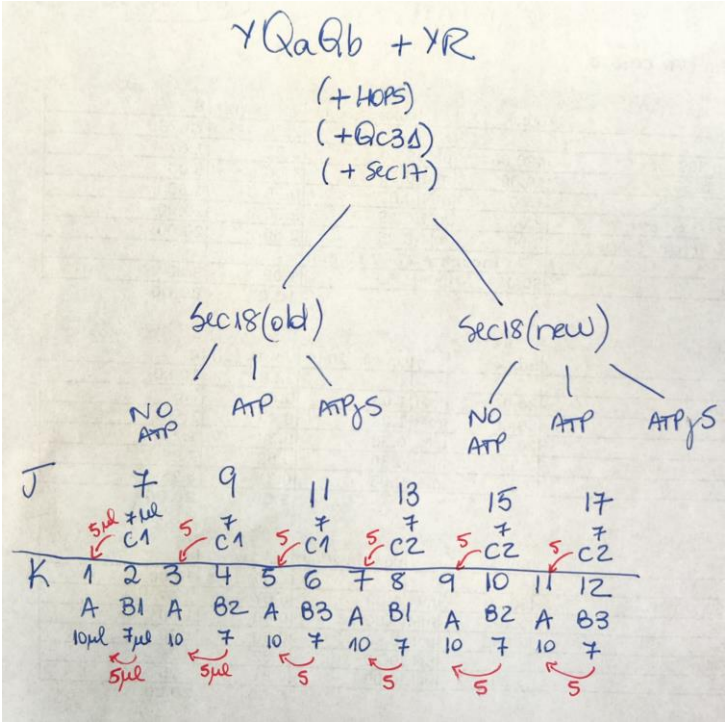 γQaQb + γR
(+HOPS)
(+Qc3Δ)
(+ Sec17)
Sec18(old) Sec18(new)
NO ATP ATP ATPγS NO ATP ATP ATPγS
J 7 9 11 13 15 17
5µl 7µl 5 7 5 7 5 7 5 7 5 7
C1 C1 C1 C2 C2 C2
K 1 2 3 4 5 6 7 8 9 10 11 12
A B1 A B2 A B3 A B1 A B2 A B3
10µl 7µl 10 7 10 7 10 7 10 7 10 7
5µl 5µl 5 5 5 5